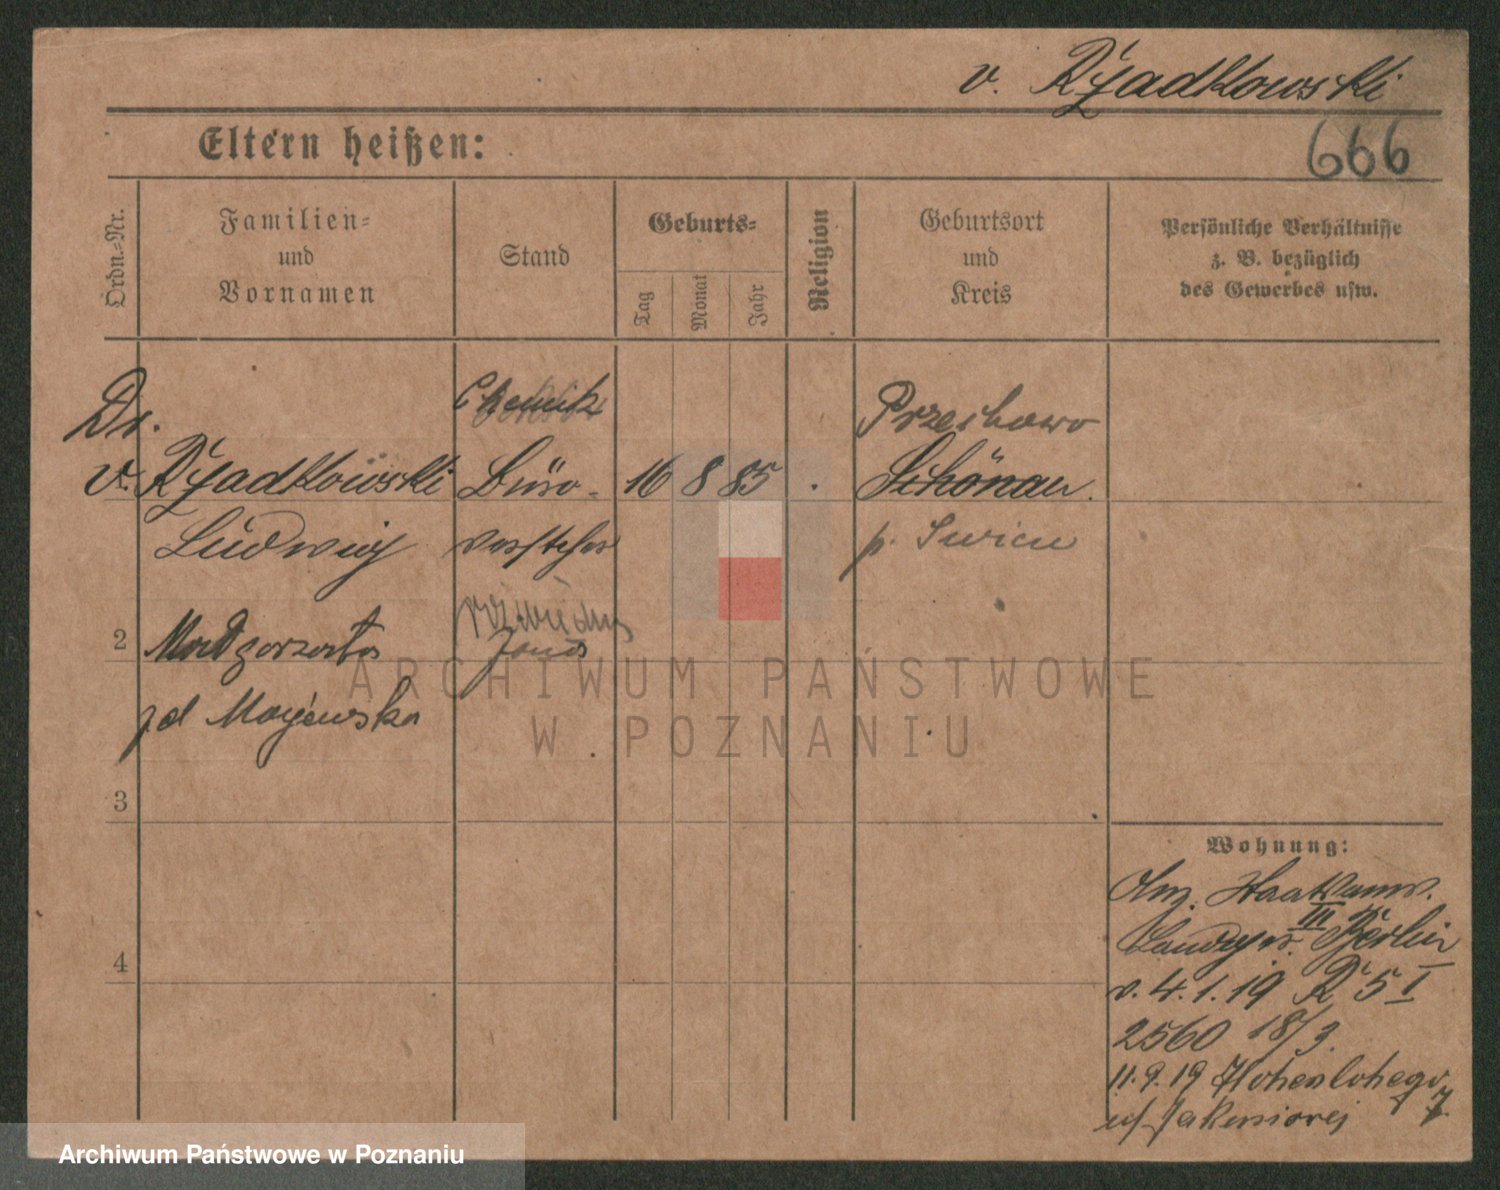 v. Rÿadkowski
Eltern heißen:
666
Ordn.-Nr.
Familien-
und
Vornamen
Stand
Geburts-
Tag
Monat
Jahr
Religion
Geburtsort
und
Kreis
Persönliche Verhältnisse
z. B. bezüglich
des Gewerbes usw.
Dr.
v. Rÿadkowski
Ludwig
Chemik
Büro-
vorsteher
16 8 85
Przechowo
Schönau.
p. Swiecie
2
Małgorzata
zd Majewska
żona
ARCHIWUM PAŃSTWOWE
W POZNANIU
3
4
Wohnung:
III Berlin
v. 4.1.19 R 5 I
2560 18/3
11.9.19 Hohenlohego 7
Archiwum Państwowe w Poznaniu